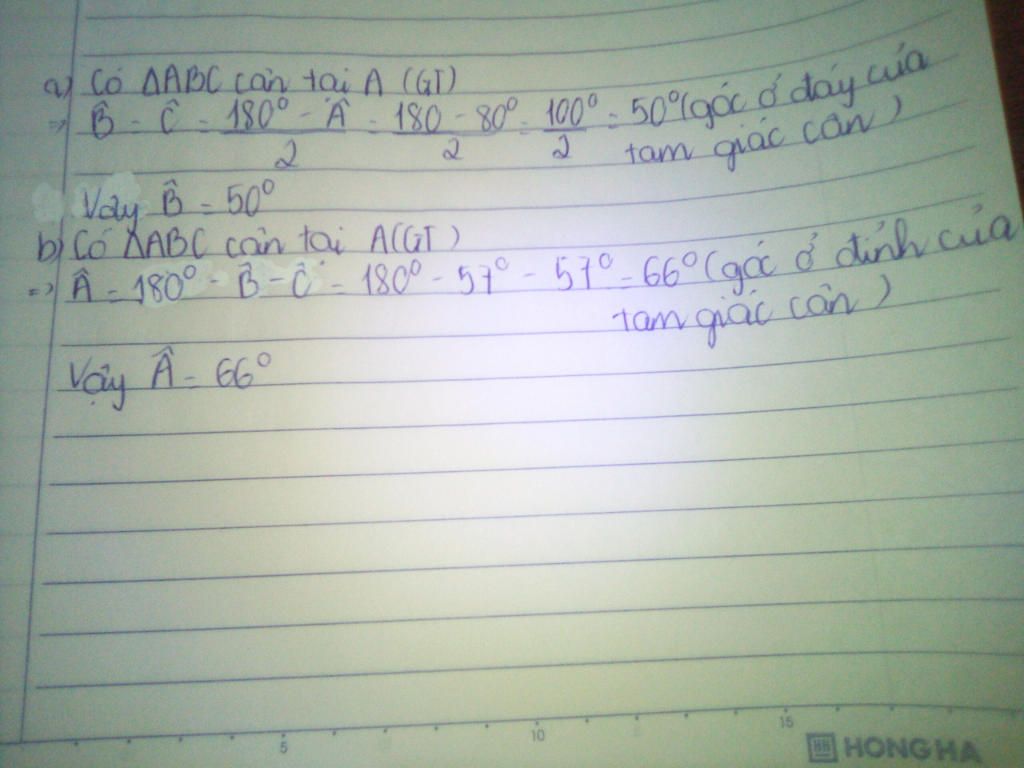 a) Có ΔABC cân tại A (GT)
=> B̂ = Ĉ = (180° - Â)/2 = (180 - 80°)/2 = 100°/2 = 50° (góc ở đáy của
tam giác cân)
Vậy B̂ = 50°
b) Có ΔABC cân tại A (GT)
=> Â = 180° - B̂ - Ĉ = 180° - 57° - 57° = 66° (góc ở đỉnh của
tam giác cân)
Vậy Â = 66°
5 10 15
HH HONG HA